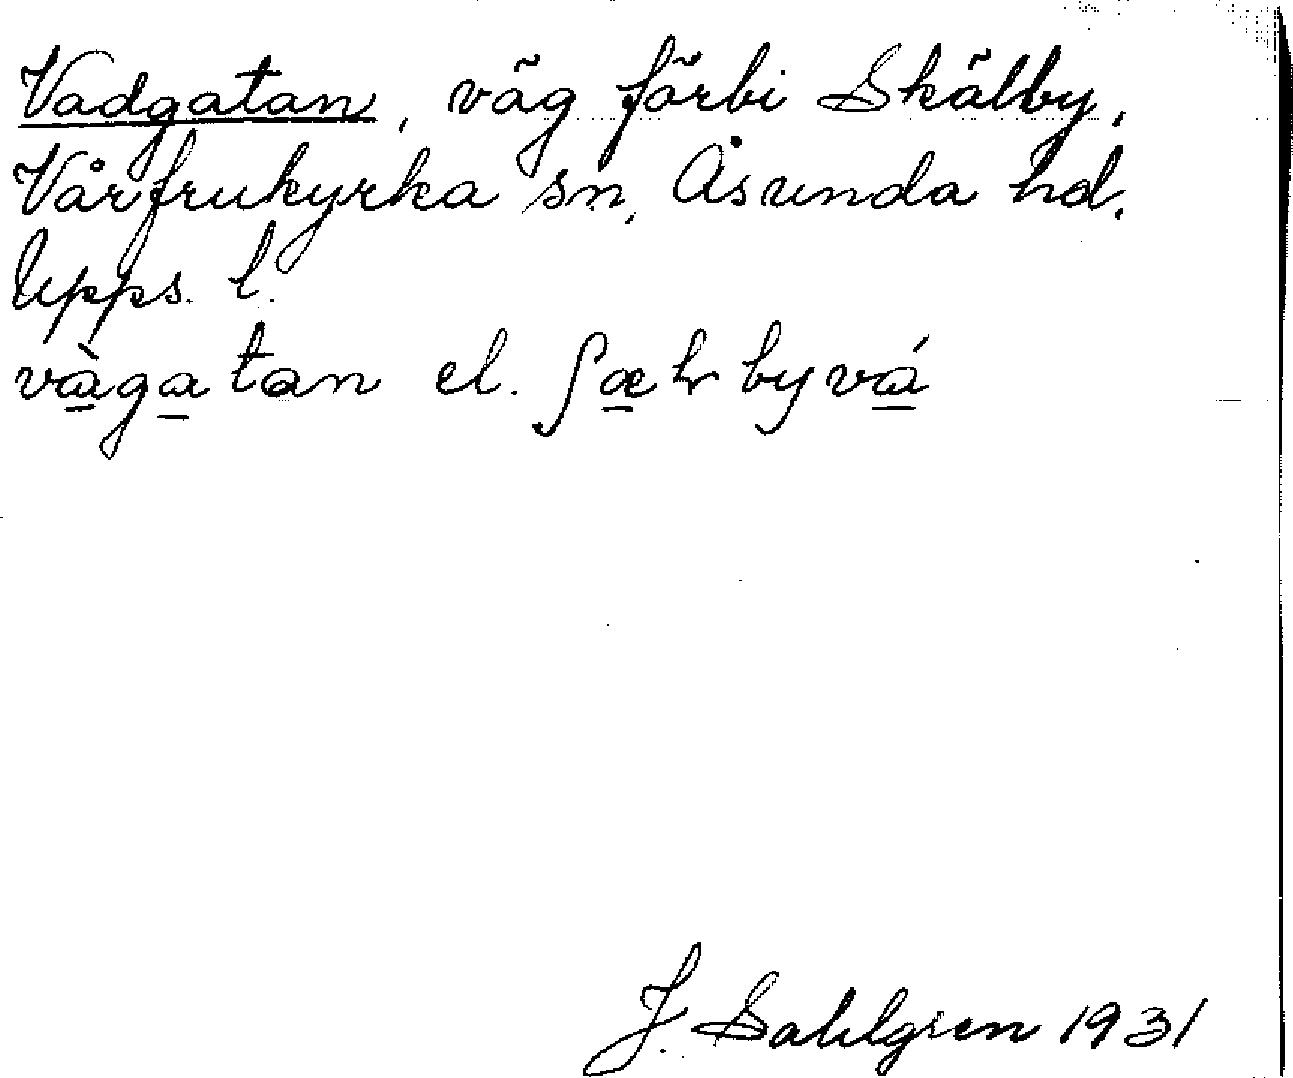 Vadgatan, väg förbi Skälby,
Vårfrukyrka sn, Åsunda hd,
Upps. l.
vàgatan el. ʃæl byvá
J. Sahlgren 1931